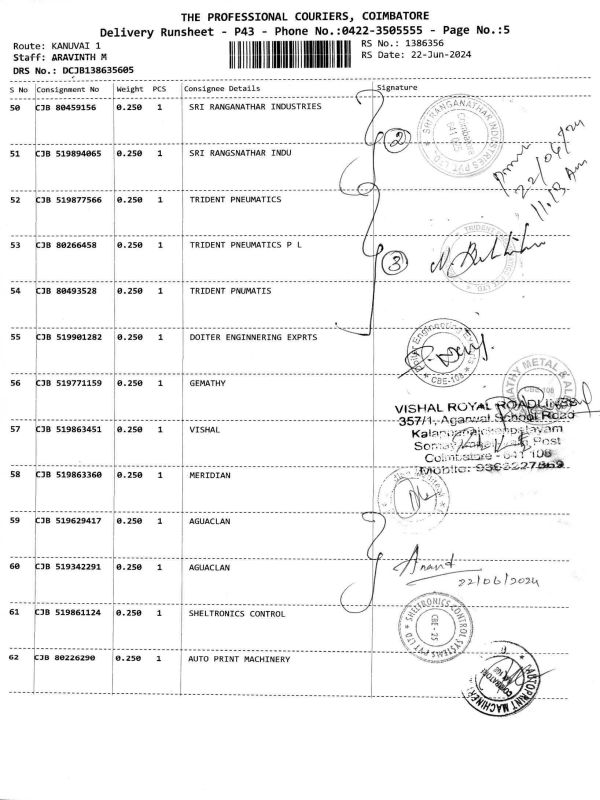 THE PROFESSIONAL COURIERS, COIMBATORE
Delivery Runsheet - P43 - Phone No.:0422-3505555 - Page No.:5
Route: KANUVAI 1
RS No.: 1386356
Staff: ARAVINTH M
RS Date: 22-Jun-2024
DRS No.: DCJB138635605
S No Consignment No Weight PCS Consignee Details Signature
50 CJB 80459156 0.250 1 SRI RANGANATHAR INDUSTRIES
SRI RANGANATHAR INDUSTRIES PVT LTD.
Coimbatore
641 108
2
22/06/24
11.13 Am
51 CJB 519894065 0.250 1 SRI RANGSNATHAR INDU
52 CJB 519877566 0.250 1 TRIDENT PNEUMATICS
53 CJB 80266458 0.250 1 TRIDENT PNEUMATICS P L
3
TRIDENT
PVT. LTD.
54 CJB 80493528 0.250 1 TRIDENT PNUMATIS
55 CJB 519901282 0.250 1 DOITER ENGINNERING EXPRTS
Engineering
CBE-108
56 CJB 519771159 0.250 1 GEMATHY
METAL &
CBE-108
57 CJB 519863451 0.250 1 VISHAL
VISHAL ROYAL ROADLINES
357/1, Agarwal School Road
Post
Coimbatore - 641 108
Mobile: 9363227869
58 CJB 519863360 0.250 1 MERIDIAN
59 CJB 519629417 0.250 1 AGUACLAN
60 CJB 519342291 0.250 1 AGUACLAN
Anand
22/06/2024
61 CJB 519861124 0.250 1 SHELTRONICS CONTROL
SHELTRONICS CONTROL SYSTEMS PVT LTD
CBE - 25
62 CJB 80226290 0.250 1 AUTO PRINT MACHINERY
AUTOPRINT MACHINERY
COIMBATORE